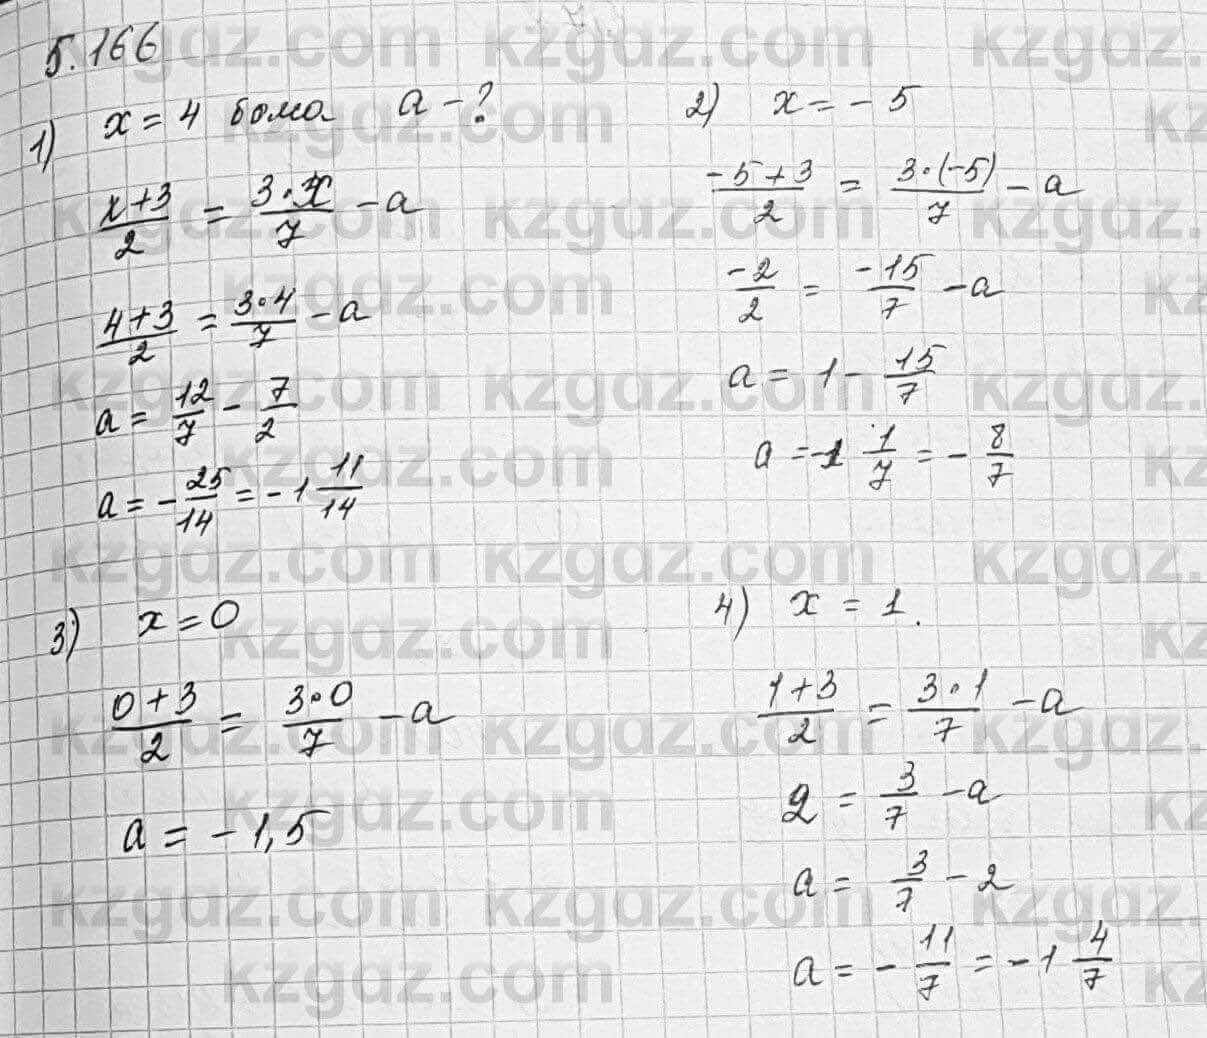 5.166
1) x = 4 болса a - ?
(x+3)/2 = (3·x)/7 - a
(4+3)/2 = (3·4)/7 - a
a = 12/7 - 7/2
a = -25/14 = -1 11/14
2) x = -5
(-5+3)/2 = (3·(-5))/7 - a
-2/2 = -15/7 - a
a = 1 - 15/7
a = -1 1/7 = -8/7
3) x = 0
(0+3)/2 = (3·0)/7 - a
a = -1,5
4) x = 1.
(1+3)/2 = (3·1)/7 - a
2 = 3/7 - a
a = 3/7 - 2
a = -11/7 = -1 4/7
kzgdz.com